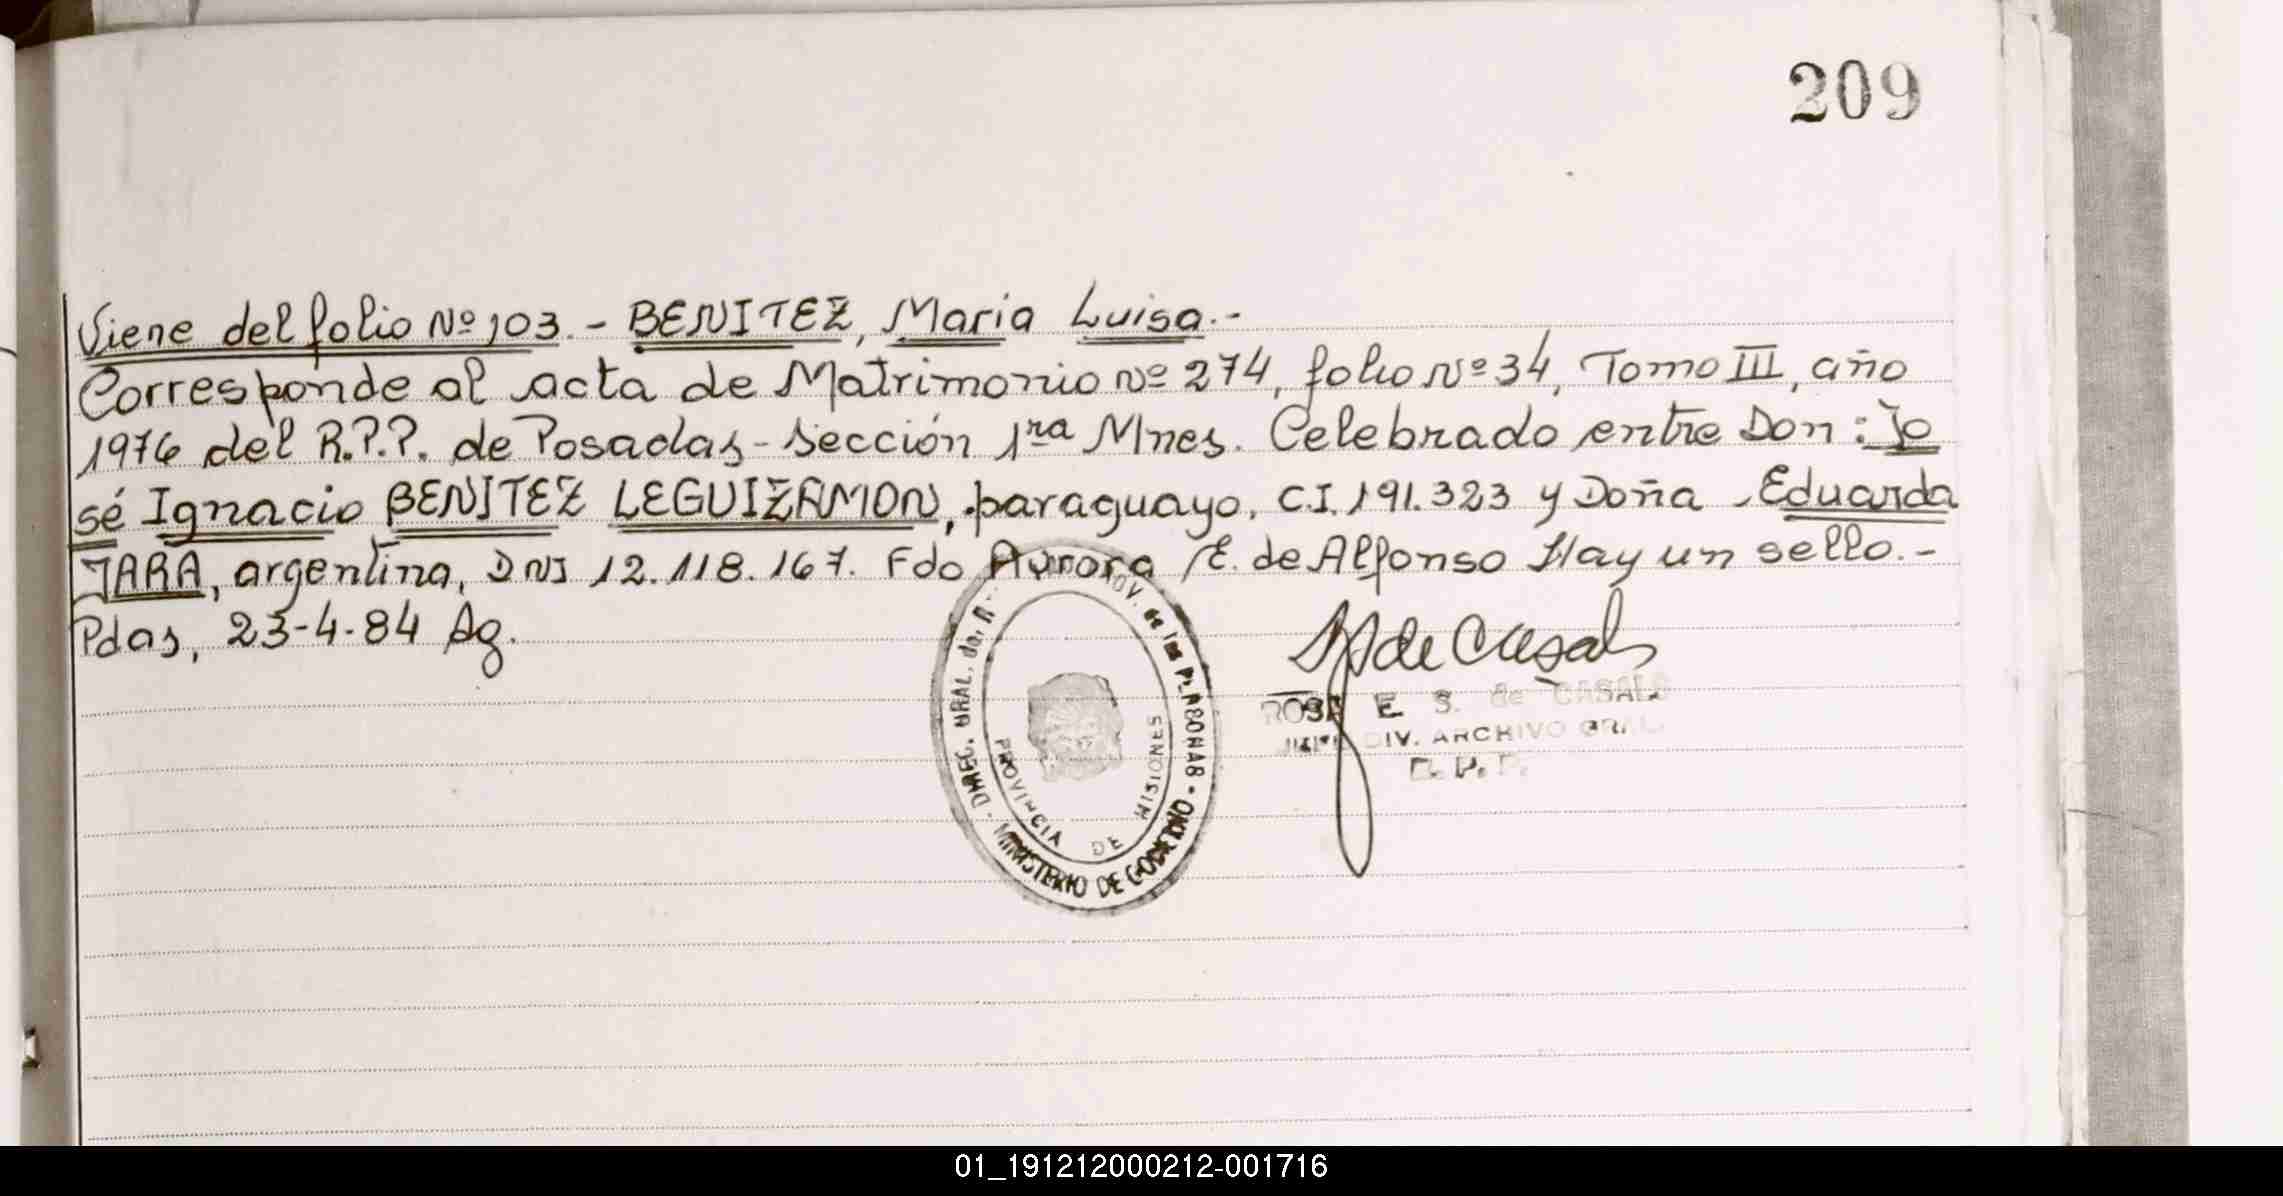 209
Viene del folio Nº 103.- BENITEZ, Maria Luisa.-
Corresponde al acta de Matrimonio Nº 274, folio Nº 34, Tomo III, año
1976 del R.P.P. de Posadas - Sección 1ra Mnes. Celebrado entre Don: Jo
sé Ignacio BENITEZ LEGUIZAMON, paraguayo, C.I. 191.323 y Doña Eduarda
JARA, argentina, DNI 12.118.167. Fdo Aurora E. de Alfonso Hay un sello.-
Pdas, 23-4-84 Ag.
de Casals
ROSA E. S. de CASALS
DIV. ARCHIVO GRAL.
DIREC. GRAL. de las PERSONAS
PROVINCIA DE MISIONES
MINISTERIO DE GOBIERNO
01_191212000212-001716